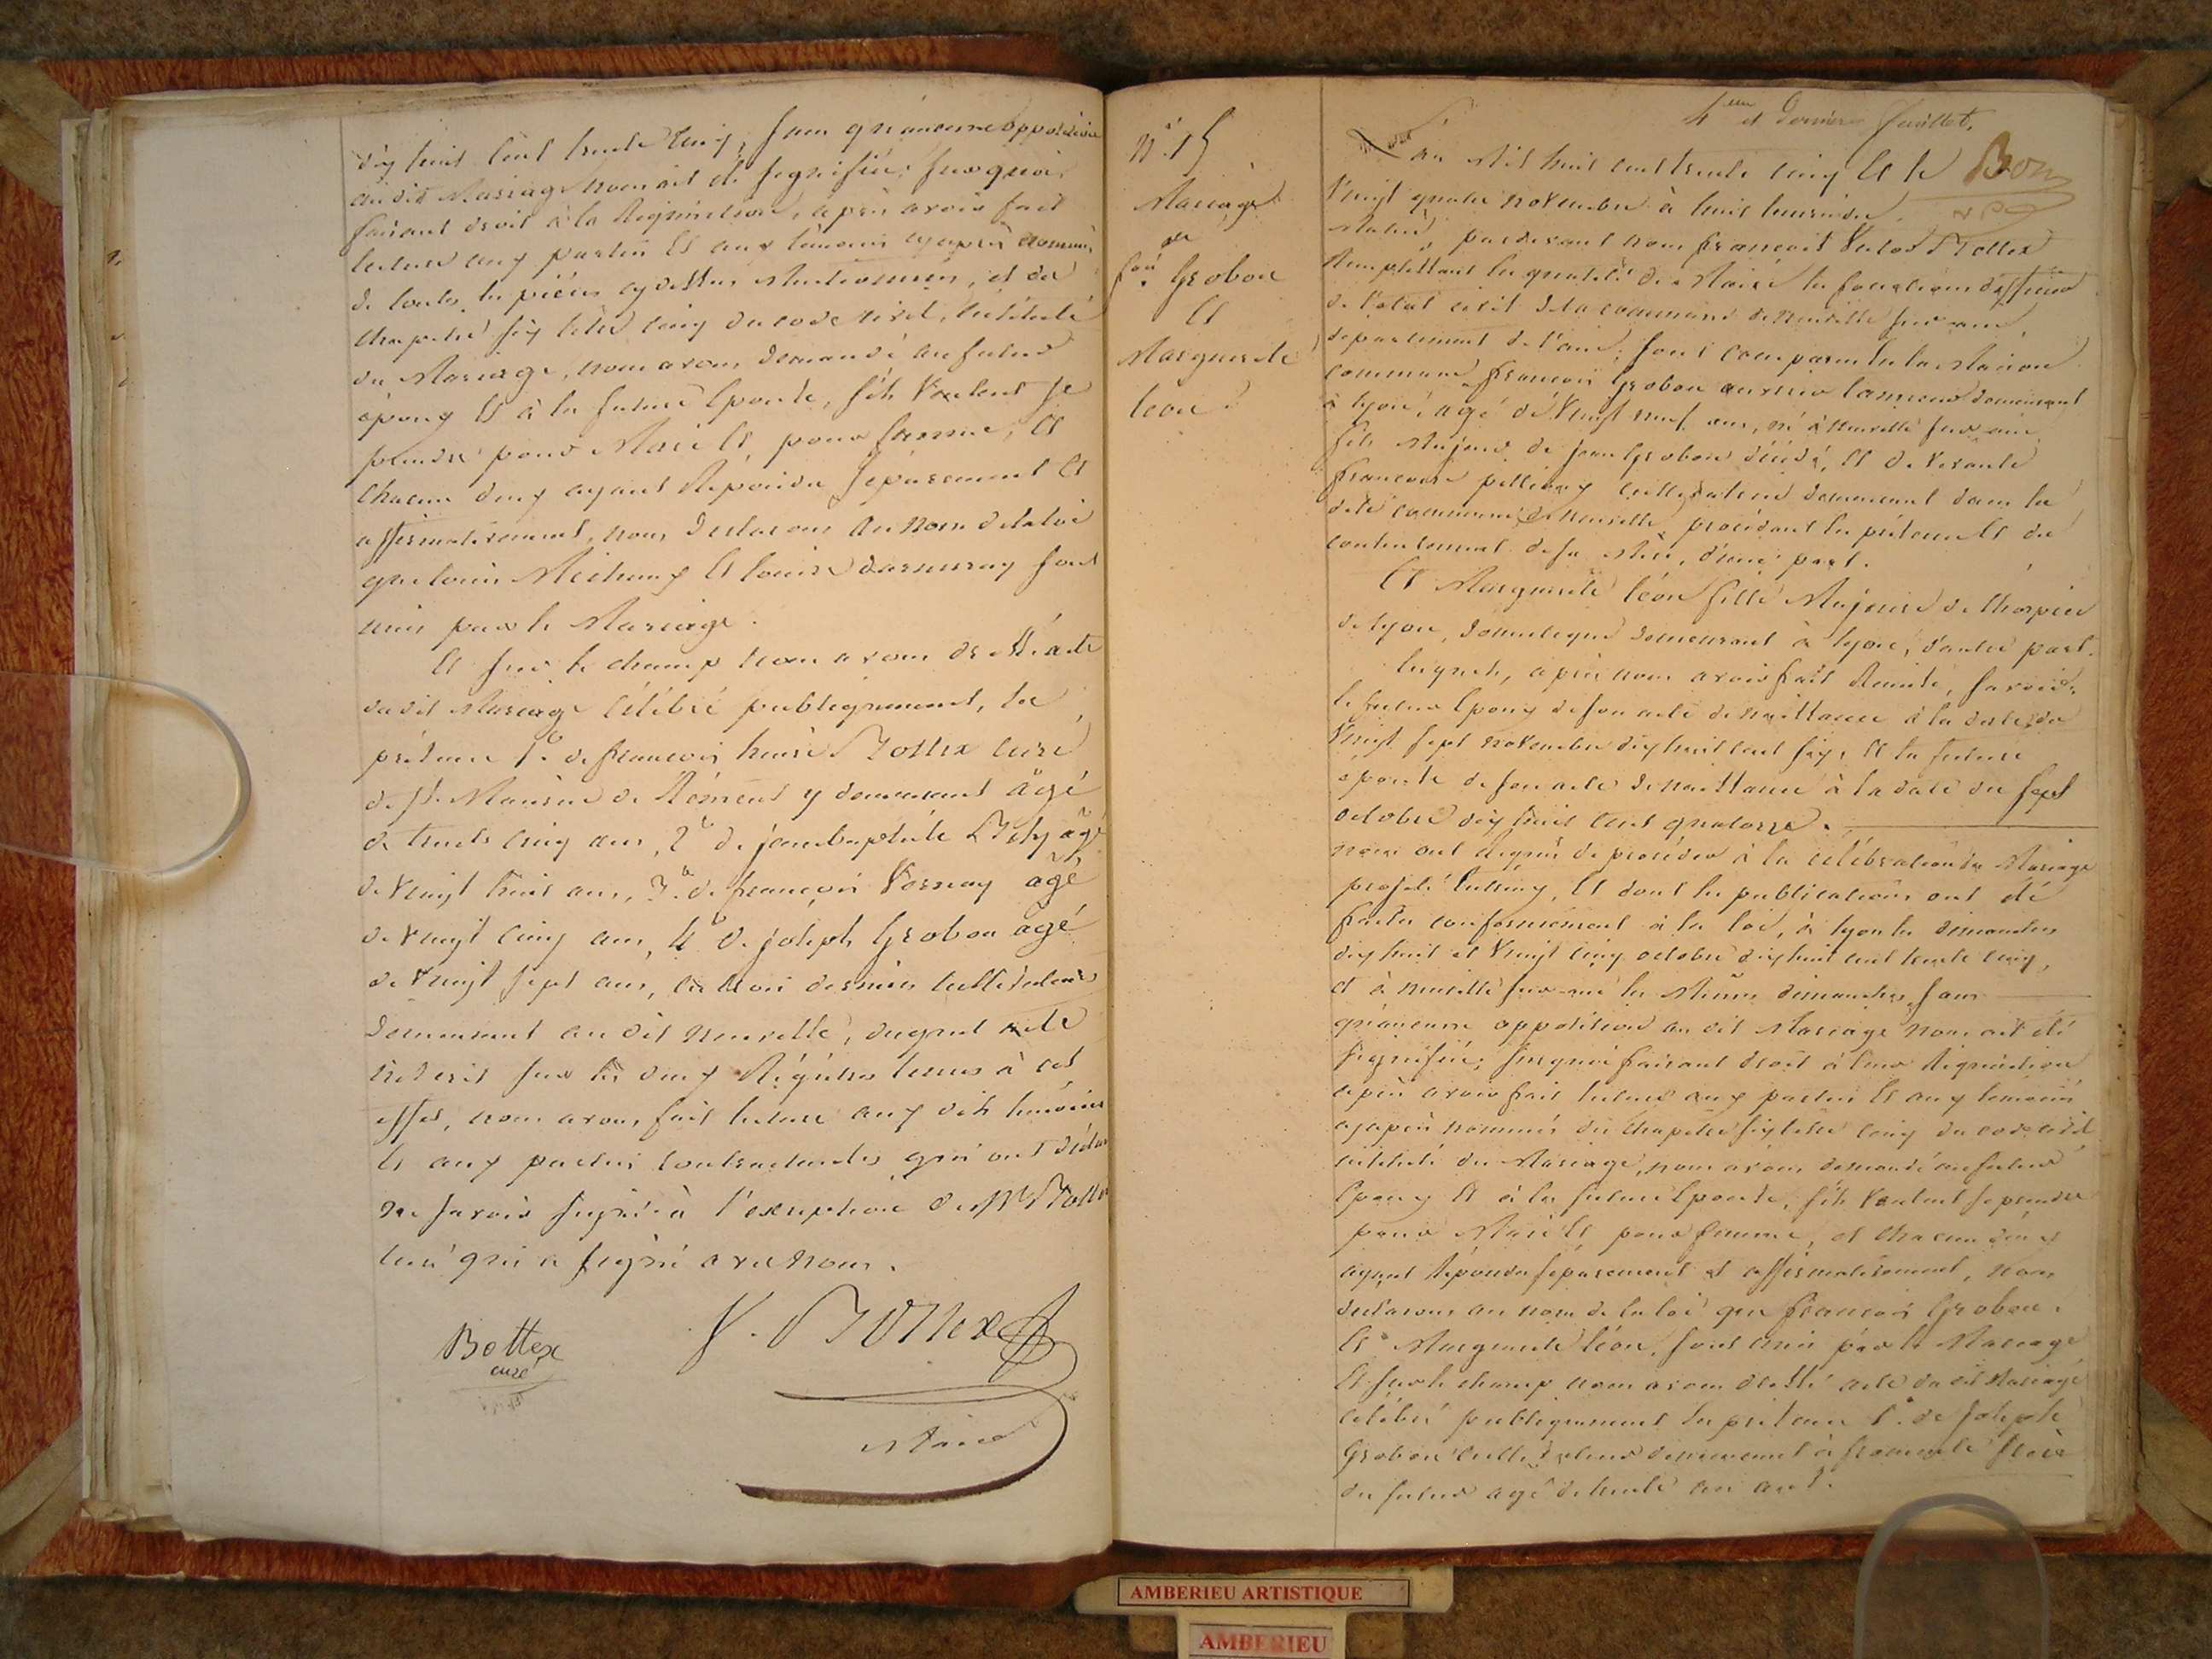 dix huit cent trente cinq, sans qu'aucune opposition
au dit Mariage nous ait été signifiée; sur quoi
faisant droit à la Réquisition, après avoir fait
lecture aux parties et aux témoins cy après nommés
de toutes les pièces cy dessus mentionnées, et du
chapitre six titre cinq du code civil, intitulé
du Mariage, nous avons demandé au futur
époux et à la future épouse, s'ils veulent se
prendre pour Mari et pour femme, et
chacun d'eux ayant Répondu séparement et
affirmativement, nous declarons au nom de la loi
que louis Michaux et louise darmuray sont
unis par le Mariage.
Et sur le champ nous avons dressé acte
du dit Mariage célébré publiquement, en
présence 1° de françois Bottex curé
de st. Maurice de Rémens y demeurant âgé
de trente cinq ans, 2° de jean baptiste âgé
de vingt huit ans, 3° de françois Vernay âgé
de vingt cinq ans, 4° de joseph Grobon âgé
de vingt sept ans, les trois derniers cultivateurs
demeurant au dit neuville, duquel acte
inscrit sur les deux Régistres tenus à cet
effet, nous avons fait lecture aux dits témoins
et aux parties contractantes qui ont déclaré
ne savoir signer à l'exception de Mr Bottex
curé qui a signé avec nous.
Bottex
curé
V. Bottex
Maire
4eme et dernier feuillet.
Bon
N°. 15
Mariage
de
fois. Grobon
et
Marguerite
léon.
L'an Mil huit cent trente cinq et le
vingt quatre novembre à huit heures du
matin, pardevant nous françois Victor Bottex
Remplissant en qualité de Maire les fonctions d'officier
de l'état civil de la commune de neuville sur ain,
departement de l'ain; sont comparus en la Maison
commune françois Grobon ouvrier tanneur demeurant
à lyon, agé de vingt neuf ans, né à neuville sur ain
fils Majeur de jean Grobon décédé, et de vivante
françoise cultivatrice demeurant dans la
dite commune de neuville, procédant en présence et du
contentement de sa Mère, d'une part.
Et Marguerite léon fille Majeure de l'hospice
de lyon, domestique demeurant à lyon, d'autre part.
lesquels, après nous avoir fait Remise, savoir:
le futur époux de son acte de naissance à la date du
vingt sept novembre dix huit cent six, et la future
épouse de son acte de naissance à la date du sept
octobre dix huit cent quatorze.
nous ont requis de procéder à la célébration du Mariage
projeté entr'eux, et dont les publications ont été
faites conformément à la loi, à lyon les dimanches
dix huit et vingt cinq octobre dix huit cent trente cinq,
et à neuville sur ain les Mêmes dimanches, sans
qu'aucune opposition au dit Mariage nous ait été
signifiée; sur quoi faisant droit à leur Réquisition
après avoir fait lecture aux parties et aux temoins
cy après nommés du chapitre six titre cinq du code civil
intitulé du Mariage, nous avons demandé au futur
époux et à la future épouse, s'ils veulent se prendre
pour Mari et pour femme, et chacun d'eux
ayant Répondu séparement et affirmativement, nous
declarons au nom de la loi que françois Grobon
et Marguerite léon, sont unis par le Mariage
Et sur le champ nous avons dressé acte du dit Mariage
célébré publiquement en présence 1° de joseph
Grobon cultivateur demeurant à fromente frère
du futur agé de trente un ans.
AMBERIEU ARTISTIQUE
AMBERIEU